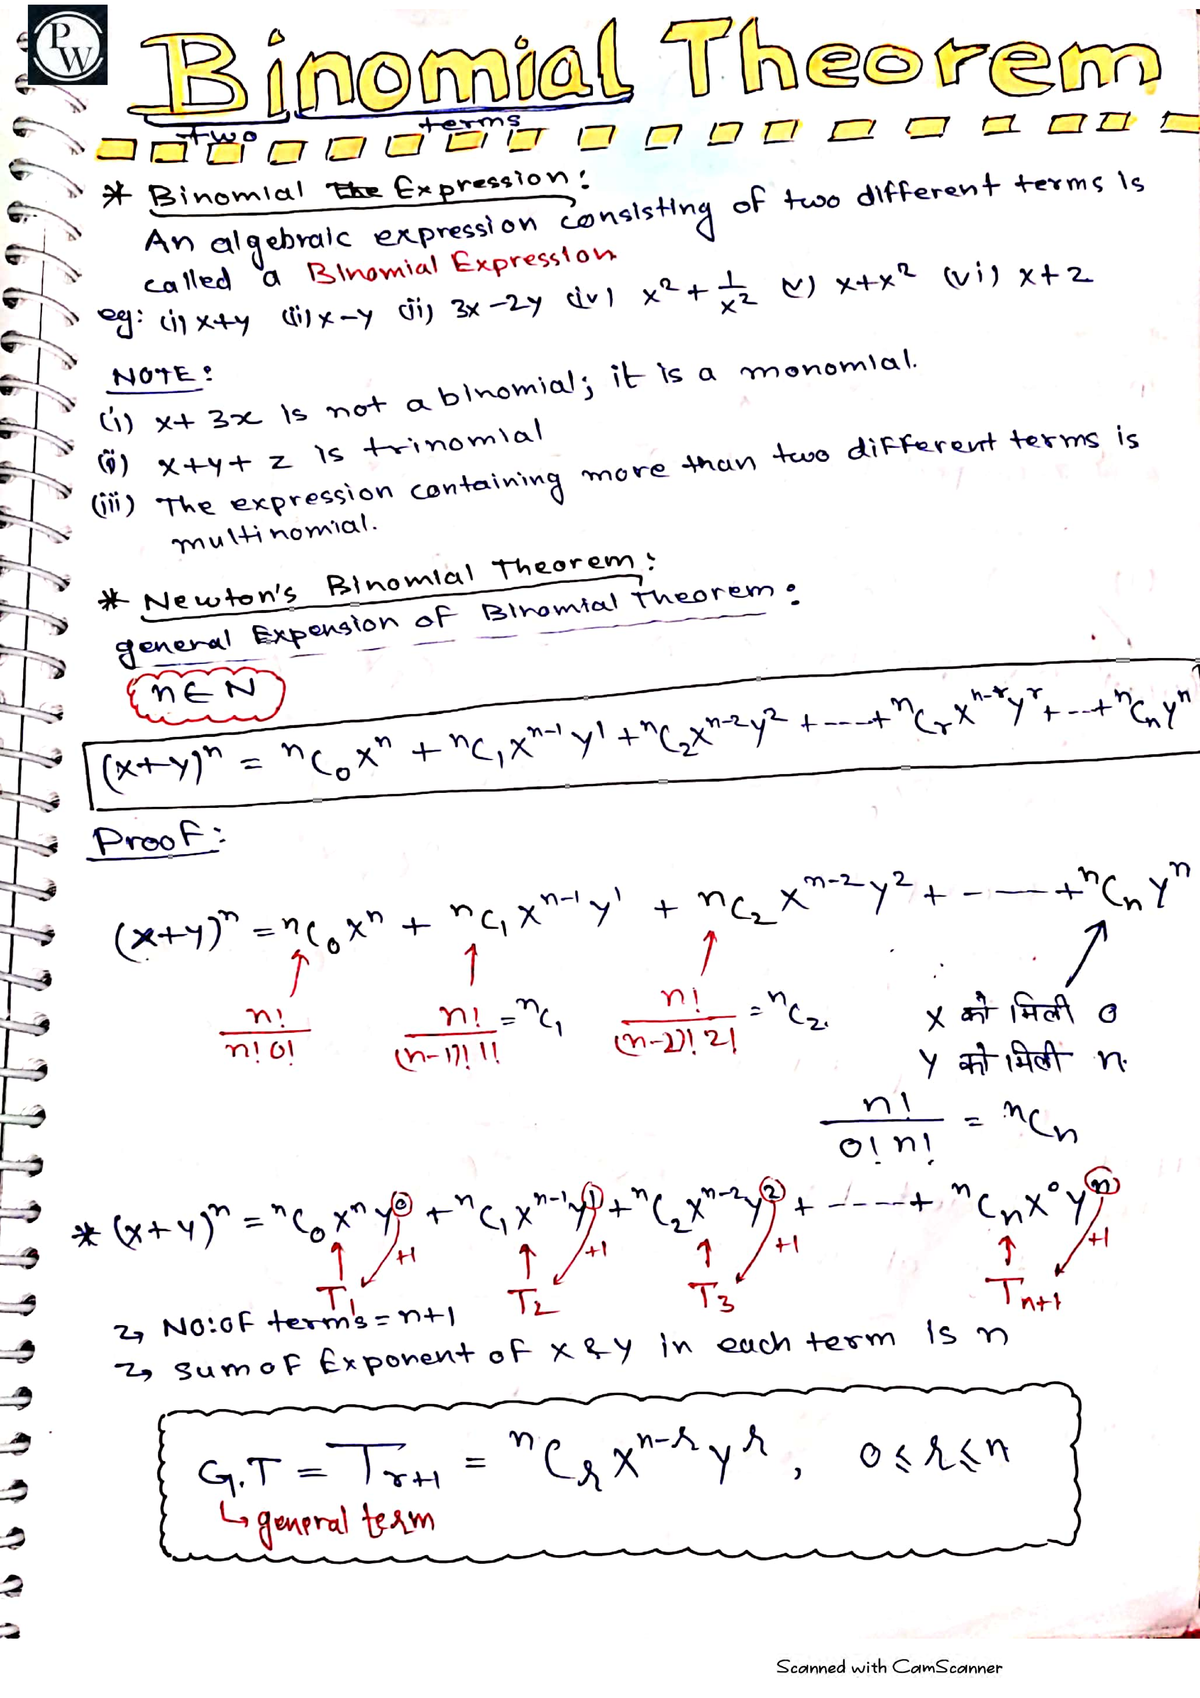 PW
Binomial Theorem
two terms
* Binomial the Expression:
An algebraic expression consisting of two different terms is
called a Binomial Expression
eg: (i) x+y (ii) x-y (iii) 3x-2y (iv) x² + 1/x² (v) x+x² (vi) x+2
NOTE:
(i) x+3x is not a binomial; it is a monomial.
(ii) x+y+z is trinomial
(iii) The expression containing more than two different terms is
multinomial.
* Newton's Binomial Theorem:
general Expension of Binomial Theorem:
n∈N
(x+y)ⁿ = ⁿC₀xⁿ + ⁿC₁xⁿ⁻¹y¹ + ⁿC₂xⁿ⁻²y² + ---- + ⁿCᵣxⁿ⁻ʳyʳ + --- + ⁿCₙyⁿ
Proof:
(x+y)ⁿ = ⁿC₀xⁿ + ⁿC₁xⁿ⁻¹y¹ + ⁿC₂xⁿ⁻²y² + ---- + ⁿCₙyⁿ
n!/n!0! n!/(n-1)!1! = ⁿC₁ n!/(n-2)!2! = ⁿC₂.
x को मिली 0
y को मिली n.
n!/0!n! = ⁿCₙ
* (x+y)ⁿ = ⁿC₀xⁿy⁰ + ⁿC₁xⁿ⁻¹y¹ + ⁿC₂xⁿ⁻²y² + ----- + ⁿCₙx⁰yⁿ
+1 +1 +1 +1
T₁ T₂ T₃ Tₙ₊₁
→ No: of terms = n+1
→ Sum of Exponent of x & y in each term is n
G.T = Tᵣ₊₁ = ⁿCᵣxⁿ⁻ʳyʳ, 0≤r≤n
↳ general term
Scanned with CamScanner